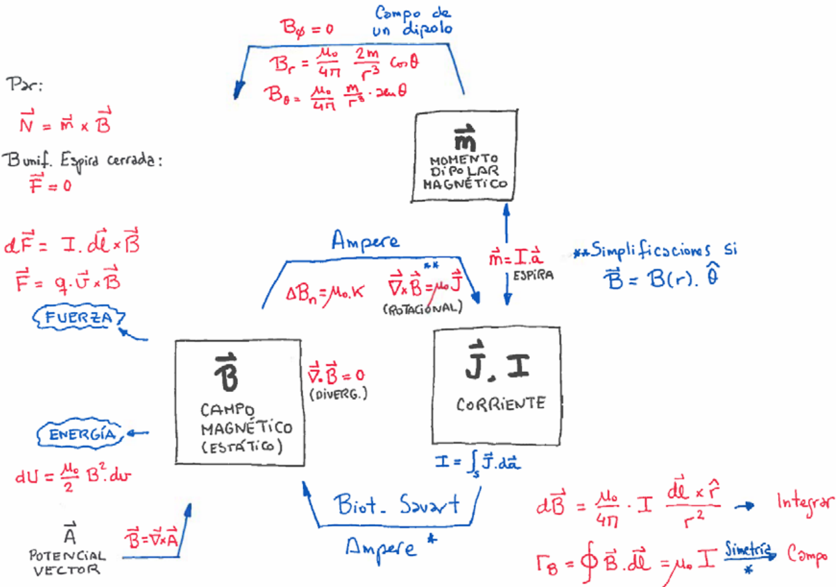 Campo de
un dipolo
B_φ = 0
B_r = μ₀/4π 2m/r³ cos θ
B_θ = μ₀/4π m/r³ · sen θ
Par:
N⃗ = m⃗ × B⃗
B unif. Espira cerrada:
F⃗ = 0
m⃗
MOMENTO
DIPOLAR
MAGNÉTICO
dF⃗ = I. dl⃗ × B⃗
F⃗ = q. v⃗ × B⃗
FUERZA
Ampere
**
ΔBₙ = μ₀.K
∇⃗×B⃗ = μ₀ J⃗
(ROTACIONAL)
m⃗ = I.a⃗
ESPIRA
**Simplificaciones si
B⃗ = B(r). θ̂
B⃗
CAMPO
MAGNÉTICO
(ESTÁTICO)
∇⃗. B⃗ = 0
(DIVERG.)
J⃗. I
CORRIENTE
I = ∫ₛ J⃗.da⃗
ENERGÍA
dU = μ₀/2 B².dv
A⃗
POTENCIAL
VECTOR
B⃗ = ∇⃗×A⃗
Biot_ Savart
Ampere *
dB⃗ = μ₀/4π · I dl⃗ × r̂/r² → Integrar
Γ_B = ∮ B⃗. dl⃗ = μ₀ I Simetría * → Campo